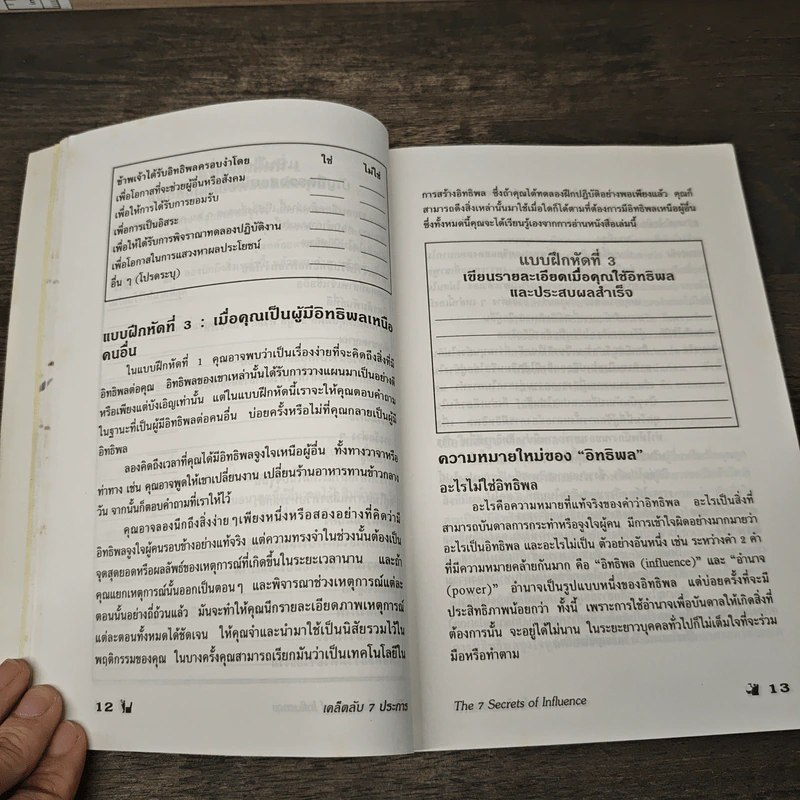 ข้าพเจ้าได้รับอิทธิพลครอบงำโดย ใช่ ไม่ใช่
เพื่อโอกาสที่จะช่วยผู้อื่นหรือสังคม
เพื่อให้การได้รับการยอมรับ
เพื่อการเป็นอิสระ
เพื่อให้ได้รับการพิจารณาทดลองปฏิบัติงาน
เพื่อโอกาสในการแสวงหาผลประโยชน์
อื่น ๆ (โปรดระบุ)
แบบฝึกหัดที่ 3 : เมื่อคุณเป็นผู้มีอิทธิพลเหนือ
คนอื่น
ในแบบฝึกหัดที่ 1 คุณอาจพบว่าเป็นเรื่องง่ายที่จะคิดถึงสิ่งที่มี
อิทธิพลต่อคุณ อิทธิพลของเขาเหล่านั้นได้รับการวางแผนมาเป็นอย่างดี
หรือเพียงแต่บังเอิญเท่านั้น แต่ในแบบฝึกหัดนี้เราจะให้คุณตอบคำถาม
ในฐานะที่เป็นผู้มีอิทธิพลต่อคนอื่น บ่อยครั้งหรือไม่ที่คุณกลายเป็นผู้มี
อิทธิพล
ลองคิดถึงเวลาที่คุณได้มีอิทธิพลจูงใจเหนือผู้อื่น ทั้งทางวาจาหรือ
ท่าทาง เช่น คุณอาจพูดให้เขาเปลี่ยนงาน เปลี่ยนร้านอาหารทานข้าวกลาง
วัน จากนั้นก็ตอบคำถามที่เราให้ไว้
คุณอาจลองนึกถึงสิ่งง่าย ๆ เพียงหนึ่งหรือสองอย่างที่คิดว่ามี
อิทธิพลจูงใจผู้คนรอบข้างอย่างแท้จริง แต่ความทรงจำในช่วงนั้นต้องเป็น
จุดสุดยอดหรือผลลัพธ์ของเหตุการณ์ที่เกิดขึ้นในระยะเวลานาน และถ้า
คุณแยกเหตุการณ์นั้นออกเป็นตอนๆ และพิจารณาช่วงเหตุการณ์แต่ละ
ตอนนั้นอย่างถี่ถ้วนแล้ว มันจะทำให้คุณนึกรายละเอียดภาพเหตุการณ์
แต่ละตอนทั้งหมดได้ชัดเจน ให้คุณจำและนำมาใช้เป็นนิสัยรวมไว้ใน
พฤติกรรมของคุณ ในบางครั้งคุณสามารถเรียกมันว่าเป็นเทคโนโลยีใน
12 เคล็ดลับ 7 ประการ
การสร้างอิทธิพล ซึ่งถ้าคุณได้ทดลองฝึกปฏิบัติอย่างพอเพียงแล้ว คุณก็
สามารถดึงสิ่งเหล่านั้นมาใช้เมื่อใดก็ได้ตามที่ต้องการมีอิทธิพลเหนือผู้อื่น
ซึ่งทั้งหมดนี้คุณจะได้เรียนรู้เองจากการอ่านหนังสือเล่มนี้
แบบฝึกหัดที่ 3
เขียนรายละเอียดเมื่อคุณใช้อิทธิพล
และประสบผลสำเร็จ
ความหมายใหม่ของ “อิทธิพล”
อะไรไม่ใช่อิทธิพล
อะไรคือความหมายที่แท้จริงของคำว่าอิทธิพล อะไรเป็นสิ่งที่
สามารถบันดาลการกระทำหรือจูงใจผู้คน มีการเข้าใจผิดอย่างมากมายว่า
อะไรเป็นอิทธิพล และอะไรไม่เป็น ตัวอย่างอันหนึ่ง เช่น ระหว่างคำ 2 คำ
ที่มีความหมายคล้ายกันมาก คือ “อิทธิพล (influence)” และ “อำนาจ
(power)” อำนาจเป็นรูปแบบหนึ่งของอิทธิพล แต่บ่อยครั้งที่จะมี
ประสิทธิภาพน้อยกว่า ทั้งนี้ เพราะการใช้อำนาจเพื่อบันดาลให้เกิดสิ่งที่
ต้องการนั้น จะอยู่ได้ไม่นาน ในระยะยาวบุคคลทั่วไปก็ไม่เต็มใจที่จะร่วม
มือหรือทำตาม
The 7 Secrets of Influence 13